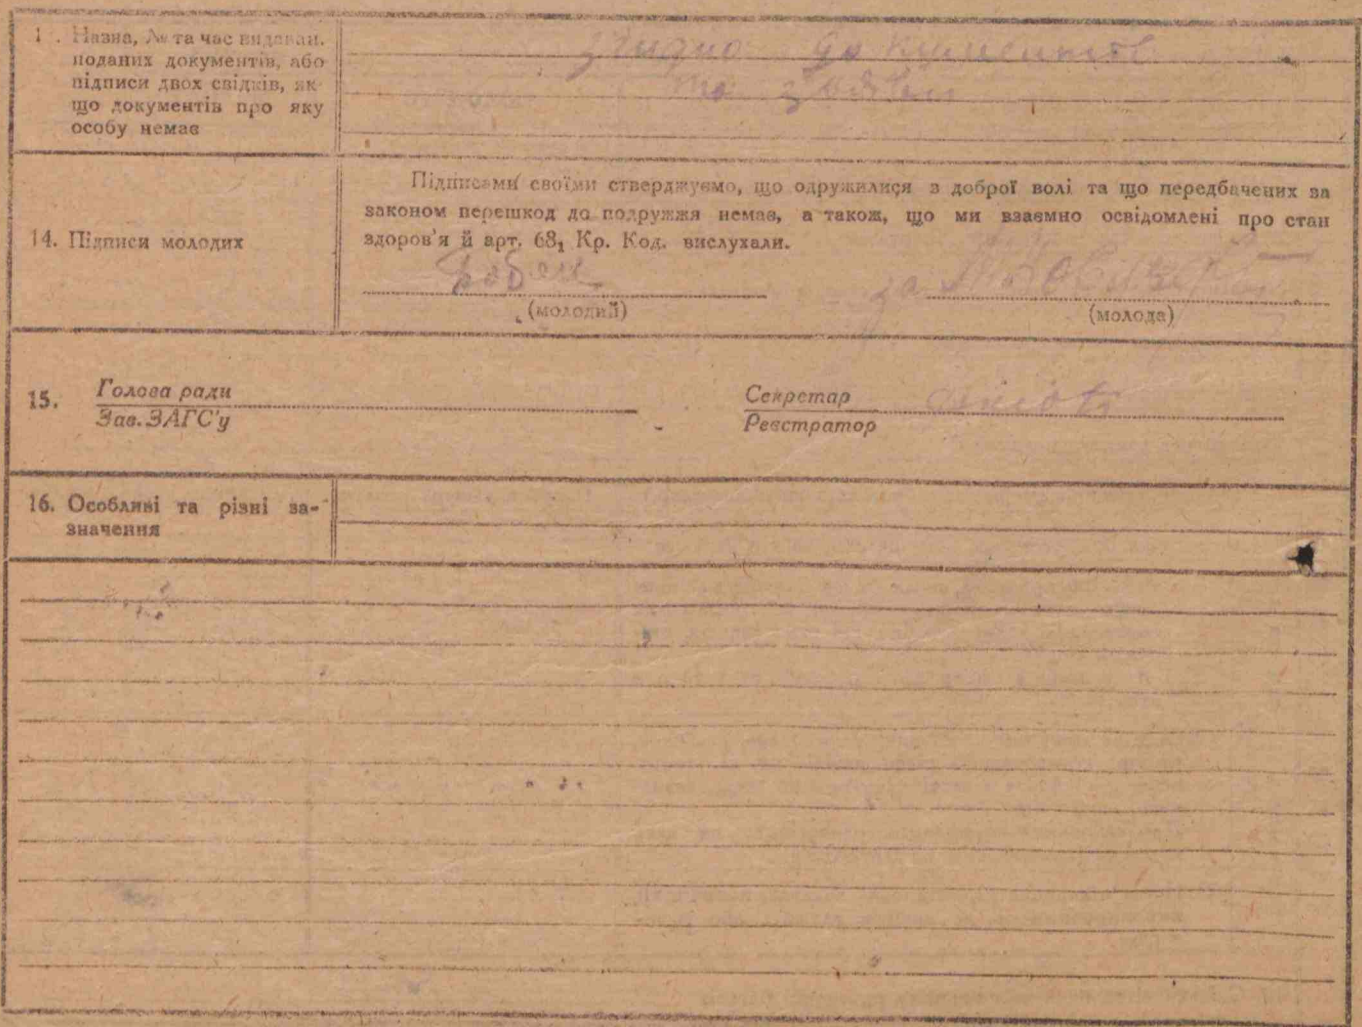 1 . Назва, № та час видаван.
поданих документів, або
підписи двох свідків, як-
що документів про яку
особу немає
згидно документів
та заяви
14. Підписи молодих
Підписами своїми стверджуємо, що одружилися з доброї волі та що передбачених за
законом перешкод до подружжя немає, а також, що ми взаємно освідомлені про стан
здоров'я й арт. 68₁ Кр. Код. вислухали.
за
(молодий) (молода)
15. Голова ради Секретар
Зав. ЗАГС'у Реєстратор
16. Особливі та різні за-
значення